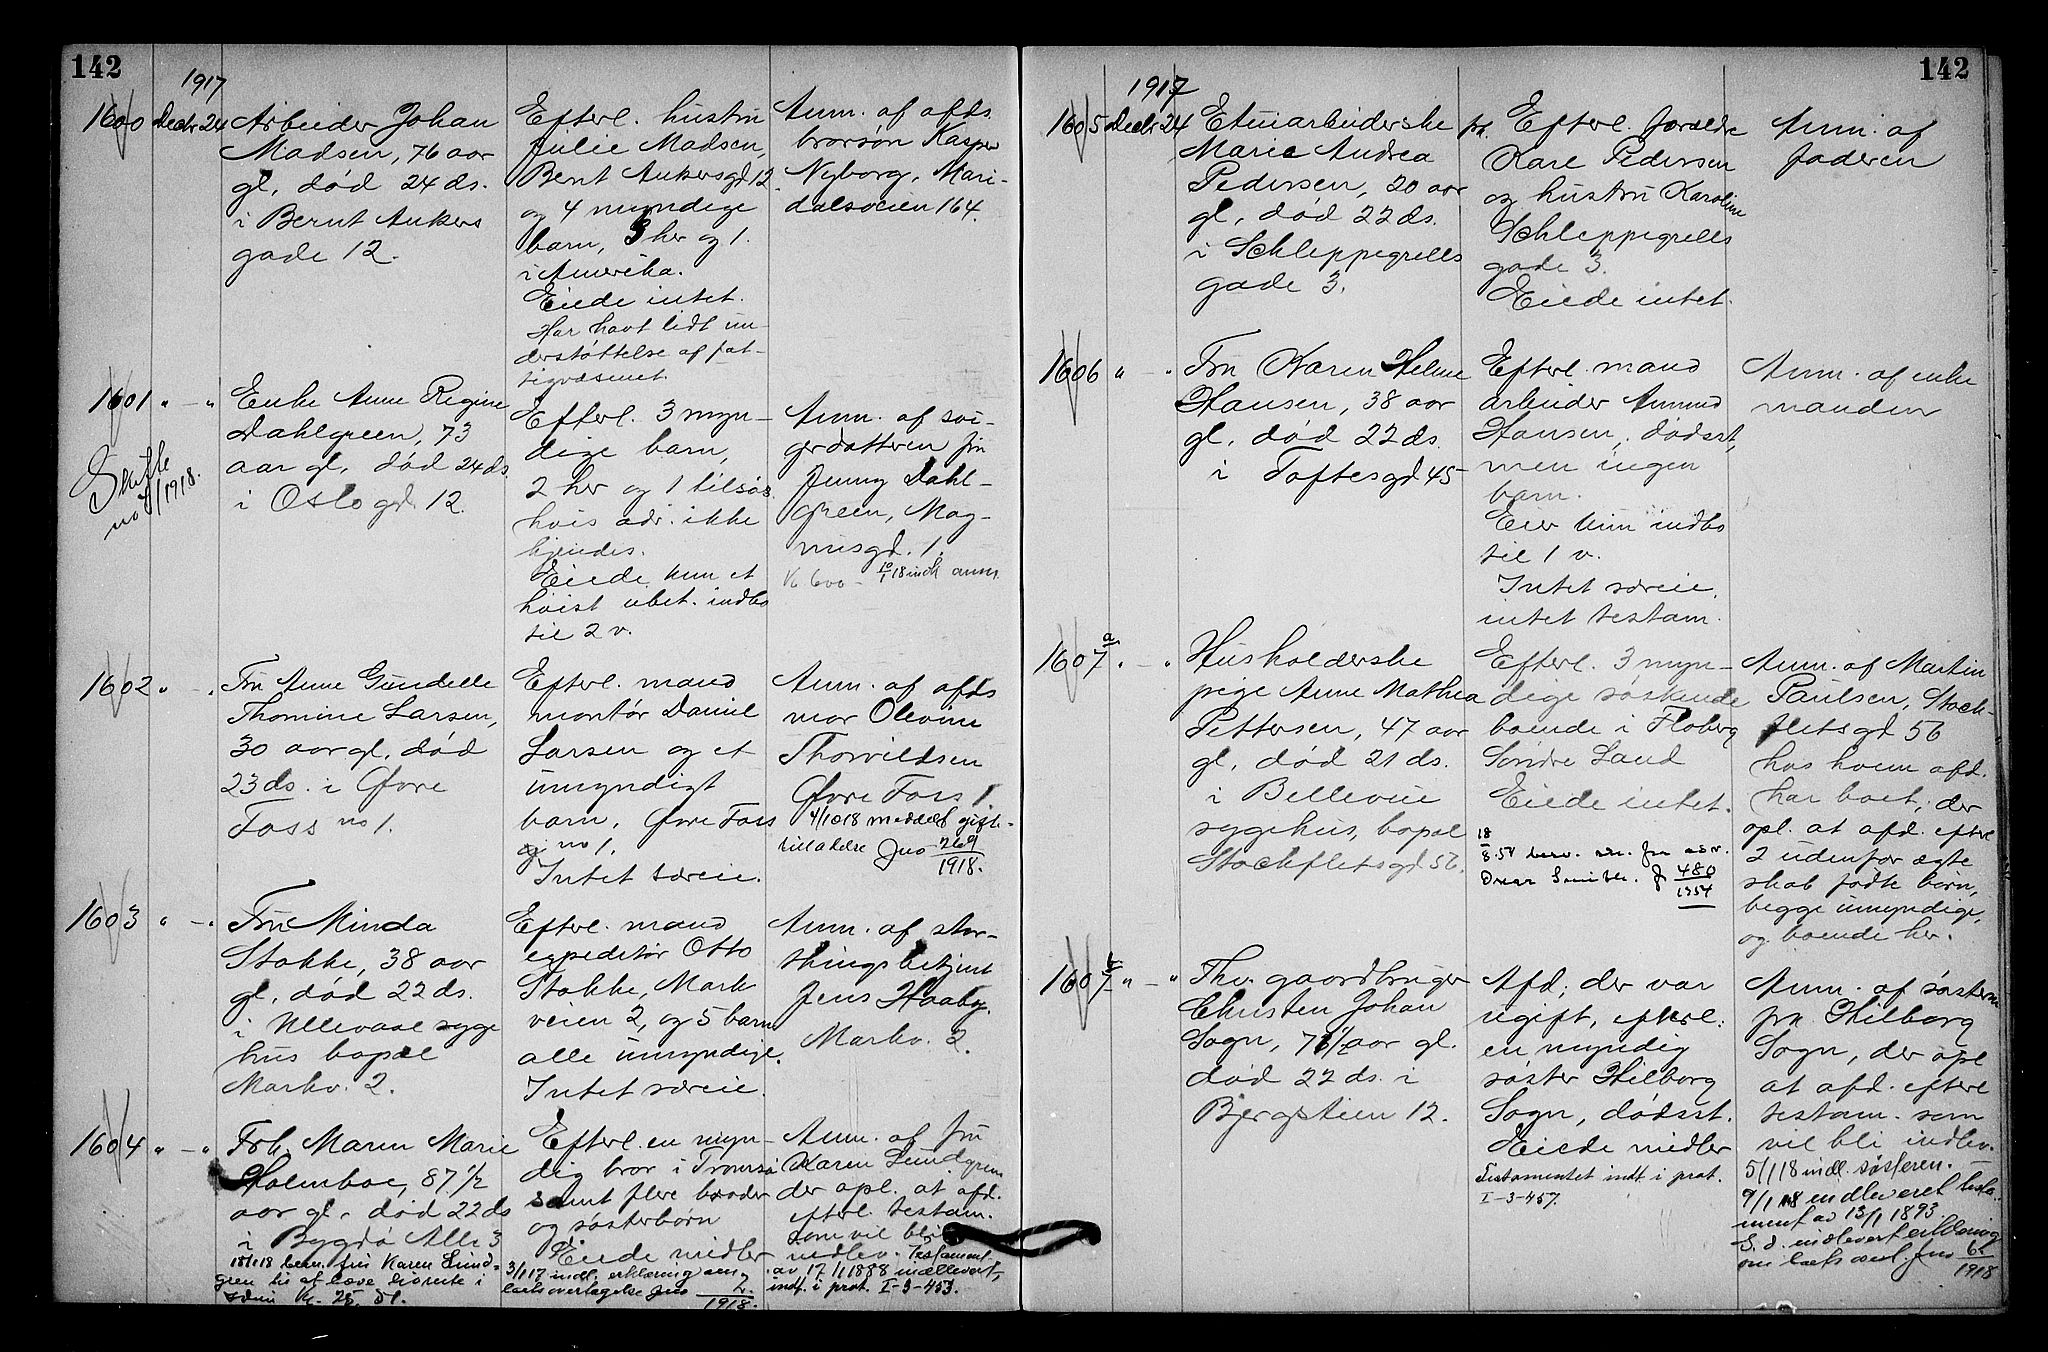 142
1917
1600 Decbr 24
Arbeider Johan
Madsen, 76 aar
gl, død 24 ds.
i Bernt Ankers
gade 12.
Efterl. hustru
Julie Madsen,
Bernt Ankersgd 12.
og 4 myndige
barn, 3 her og 1.
i Amerika.
Eiede intet.
Har havt lidt un-
derstøttelse af fat-
tigvæsenet.
Anm. af afds.
brorsøn Kasper
Nyborg, Mari-
dalsveien 164.
1601 " - "
Skifte
no 1/1918.
Enke Anne Regine
Dahlgreen, 73
aar gl, død 24 ds.
i Oslo gd. 12.
Efterl. 3 myn-
dige barn,
2 her og 1 tilsøs
hvis adr. ikke
kjendes.
Eiede kun et
høist ubet. indbo
til 2 v.
Anm. af svi-
gerdatteren fru
Jenny Dahl-
green, Mag-
nusgd. 1.
K 600 - 10/1 18 indk anm.
1602 " - "
Fru Anne Gundelle
Thomine Larsen,
30 aar gl, død
23 ds. i Øvre
Foss no 1.
Efterl. mand
montør Daniel
Larsen og et
umyndigt
barn, Øvre Foss
no 1.
Intet særeie.
Anm. af afds
mor Olevine
Thorvildsen
Øvre Foss 1
4/10 18 meddelt gifte-
tilladelse Jno 269
1918.
1603 " - "
Fru Minda
Stokke, 38 aar
gl, død 22 ds.
i Ullevaal syge
hus bopæl
Markv. 2.
Efterl. mand
expeditør Otto
Stokke, Mark
veien 2, og 5 barn
alle umyndige.
Intet særeie.
Anm. af stor-
thingsbetjent
Jens Haaby.
Markv. 2.
1604 " - "
Frk. Maren Marie
Holmboe, 87 1/2
aar gl, død 22 ds
i Bygdø Alle 3
18/1 18 bem. fru Karen Lund-
green til at hæve rente i
K. 25, 51.
Efterl. en myn-
dig bror i Tromsø
samt flere broder
og søsterbørn
Eiede midler
3/1 17 indl. erklæring
bootsovertagelse Jno 2
1918.
Anm. af fru
Karen Lundgreen
der opl. at afd.
efterl. testam.
som vil bli
indlev. Testament
av 17/1 1888 indleveret,
indt. i prot. I-3-453.
142
1917
1605 Decbr 24
Etuiarbeiderske
Marie Andrea
Pedersen, 20 aar
gl, død 22 ds.
i Schleppegrells
gade 3.
Efterl. forældre
Karl Pedersen
og hustru Karoline
Schleppegrells
gade 3.
Eiede intet.
Anm. af
faderen
1606 " - "
Fru Karen Helene
Hansen, 38 aar
gl, død 22 ds.
i Toftesgd 45
Efterl. mand
arbeider Amund
Hansen, dødsst,
men ingen
barn.
Eier kun indbo
til 1 v.
Intet særeie,
intet testam.
Anm. af enke
manden
1607 a " - "
Husholderske
pige Anne Mathea
Pettersen, 47 aar
gl, død 21 ds.
i Bellevue
sygehus, bopæl
Stockfletsgd 56.
Efterl. 3 myn-
dige søskende
boende i Floberg
Søndre Land
Eiede intet.
18
8.54 besv. skr. fra adv.
J 480
1954
Anm. af Martin
Paulsen, Stock-
fletsgd 56
hos hvem afd.
har boet, der
opl. at afd. efterl
2 udenfor ægte
skab fødte børn,
begge umyndige,
og boende her.
1607 b " - "
Fhv. gaardbruger
Christen Johan
Sogn, 76 1/2 aar gl.
død 22 ds. i
Bjergstien 12.
Afd, der var
ugift, efterl.
en myndig
søster Hilborg
Sogn, dødsst.
Eiede midler
Testamentet indt. i prot.
I-3-457.
Anm. af søsteren
frk. Hilborg
Sogn, der opl
at afd. efterl
testam. som
vil bli indlev.
5/1 18 indl. søsteren.
9/1 18 indleveret testa-
ment av 13/1 1893.
S. d. indlevert erklæring
om boets overt. Jno 62
1918